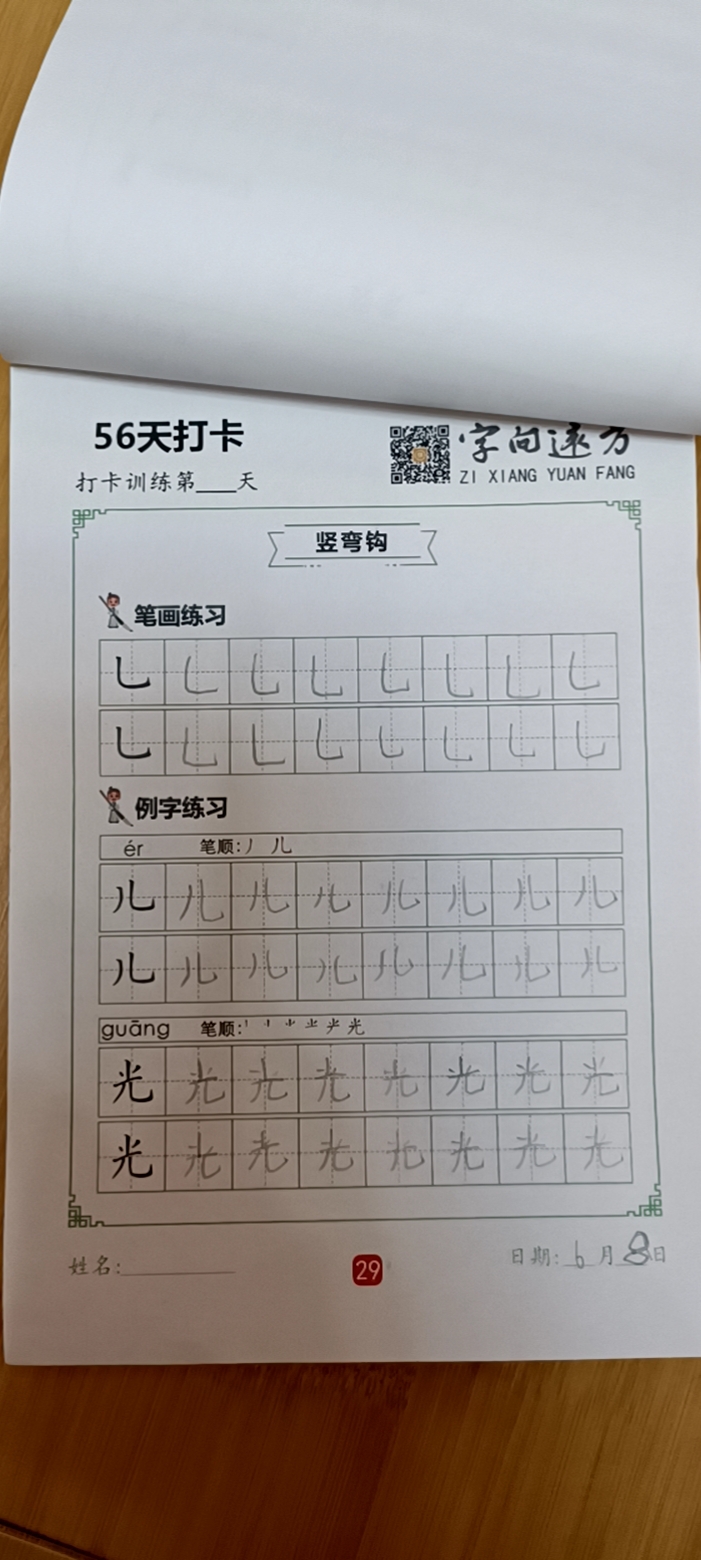 56天打卡
字向远方
打卡训练第___天
ZI XIANG YUAN FANG
竖弯钩
笔画练习
乚 乚 乚 乚 乚 乚 乚 乚
乚 乚 乚 乚 乚 乚 乚 乚
例字练习
ér 笔顺:丿 儿
儿 儿 儿 儿 儿 儿 儿 儿
儿 儿 儿 儿 儿 儿 儿 儿
guāng 笔顺: 光
光 光 光 光 光 光 光 光
光 光 光 光 光 光 光 光
姓名:
29
日期: 6 月 8 日